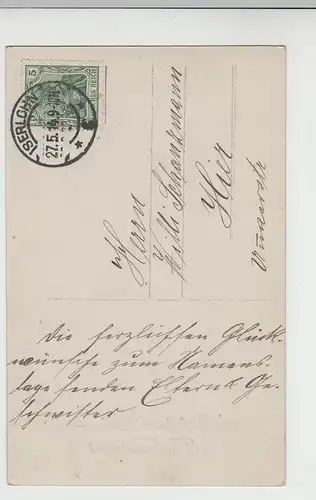 5
ISERLOHN
27.5.14.9-10V.
Herrn
Willi Schankmann
Hier
Die herzlichsten Glück-
wünsche zum Namens-
tage senden Eltern u. Ge-
schwister